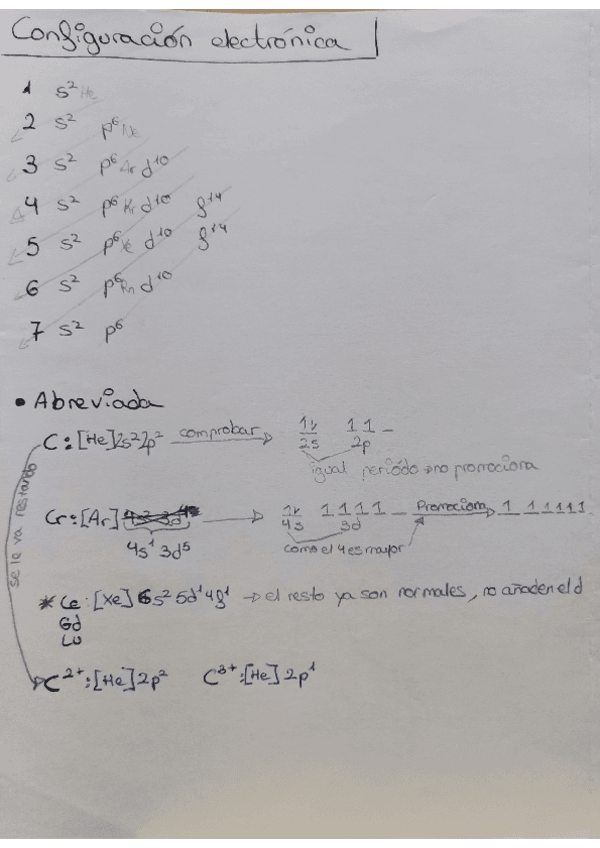 Configuración electrónica
1 s² He
2 s² p⁶ Ne
3 s² p⁶ Ar d¹⁰
4 s² p⁶ Kr d¹⁰ f¹⁴
5 s² p⁶ Xe d¹⁰ f¹⁴
6 s² p⁶ Rn d¹⁰
7 s² p⁶
• Abreviada
C: [He] 2s² 2p² comprobar 1↓ 1 1 _
2s 2p
igual período → no promociona
Cr: [Ar] 4s² 3d⁴ → 1↓ 1 1 1 1 _ Promociona 1 1 1 1 1 1
4s 3d
4s¹ 3d⁵ como el 4 es mayor
se le va restando
* Ce: [Xe] 6s² 5d¹ 4f¹ → el resto ya son normales, no añaden el d
Gd
Lu
C²⁺: [He] 2p² C³⁺: [He] 2p¹